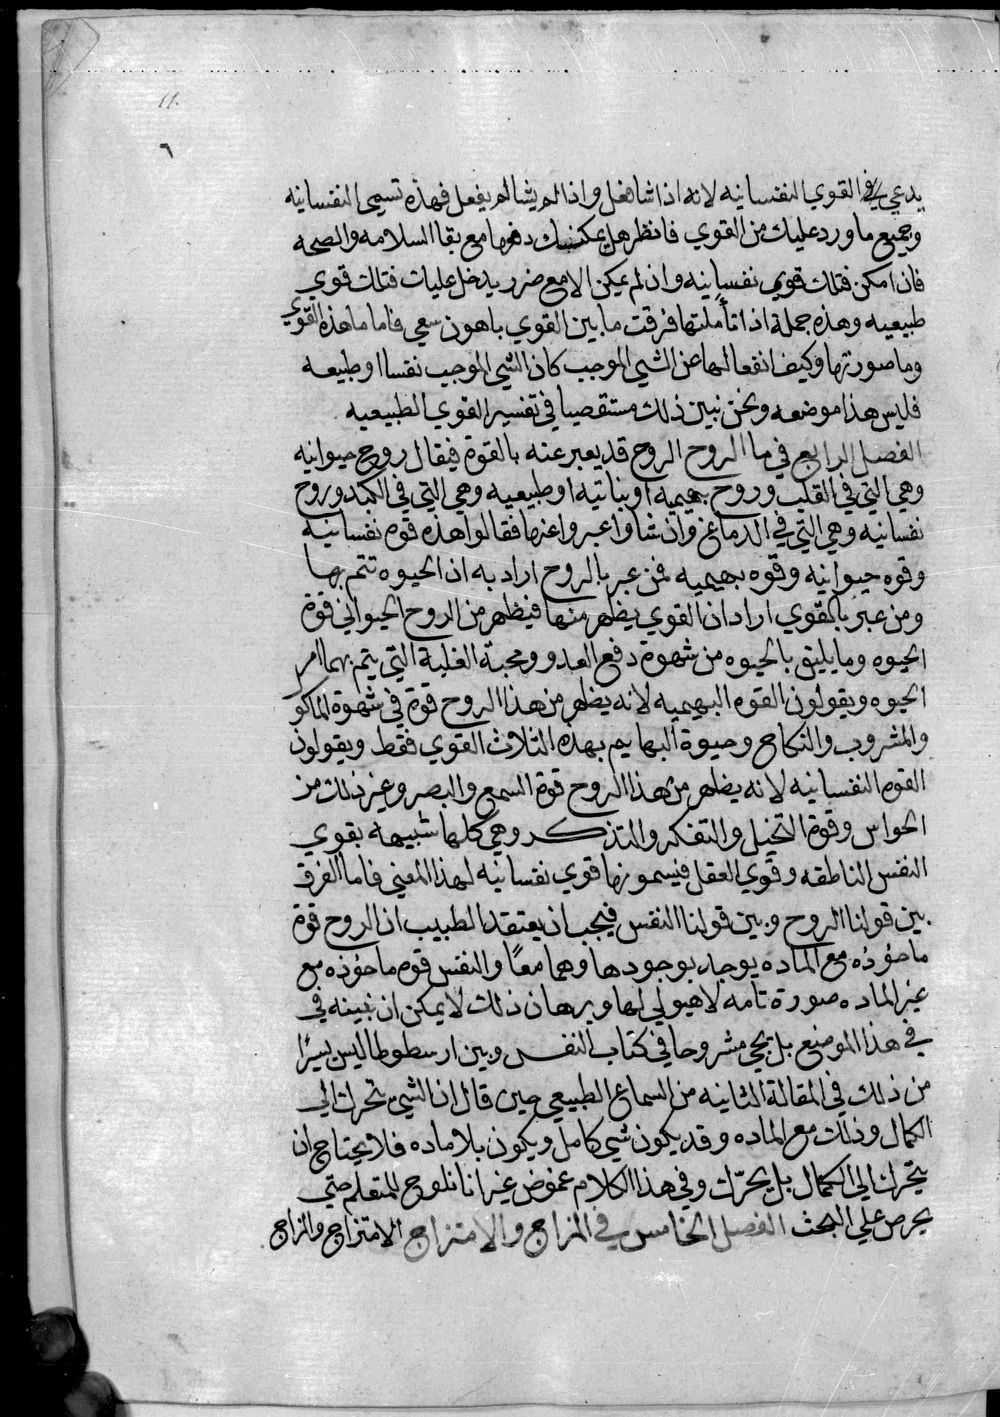 ١١٠
٦
يدعي في القوي النفسانيه لانه اذا شا فعل واذا لم يشا لم يفعل فهذه تسمي النفسانيه
وجميع ما ورد عليك من القوي فانظر هل يمكنك دفعها مع بقا السلامه والصحه
فان امكن فتلك قوي نفسانيه وان لم يمكن الا مع ضرر يدخل عليك فتلك قوي
طبيعيه وهذه جملة اذا تأملتها فرقت ما بين القوي باهون سعي فاما ما هذه القوي
وما صورتها وكيف انفعالها عن الشي الموجب كان الشي الموجب نفسا او طبيعه
فليس هذا موضعه ونحن نبين ذلك مستقصيا في تفسير القوي الطبيعيه
الفصل الرابع في ما الروح الروح قد يعبر عنه بالقوة فيقال روح حيوانيه
وهي التي في القلب وروح بهيميه او نباتيه او طبيعيه وهي التي في الكبد وروح
نفسانيه وهي التي في الدماغ وان شاوا عبروا عنها فقالوا هذه قوه نفسانيه
وقوه حيوانيه وقوه بهيميه فمن عبر بالروح اراد به ان الحيوه تتم بها
ومن عبر بالقوي اراد ان القوي يظهر منها فيظهر من الروح الحيواني قوة
الحيوه وما يليق بالحيوه من شهوة دفع العدو ومحبة الغلبة التي يتم بهما امر
الحيوه ويقولون القوه البهيميه لانه يظهر من هذا الروح قوة في شهوة الماكو
والمشروب والنكاح وحيوة البهايم بهذه الثلاث القوي فقط ويقولون
القوه النفسانيه لانه يظهر من هذا الروح قوة السمع والبصر وغير ذلك من
الحواس وقوة التخيل والتفكر والتذكر وهي كلها شبيهه بقوي
النفس الناطقه وقوي العقل فيسمونها قوي نفسانيه لهذا المعني فاما الفرق
بين قولنا الروح وبين قولنا النفس فيجب ان يعتقد الطبيب ان الروح قوة
ماخوذه مع الماده يوجد بوجودها وهما معًا والنفس قوه ماخوذه مع
غير الماده صورة تامه لا هيولي لها وبرهان ذلك لا يمكن ان نبينه في
في هذا الموضع بل يجي مشروحا في كتاب النفس وبين ارسطوطاليس يسيرًا
من ذلك في المقالة الثانيه من السماع الطبيعي حين قال ان الشي يتحرك الي
الكمال وذلك مع الماده وقد يكون شي كامل ويكون بلا ماده فلا يحتاج ان
يتحرك الي الكمال بل يحرّك وفي هذا الكلام غموض غير انا نلوح للمتعلم حتي
يحرص علي البحث الفصل الخامس في المزاج والامتزاج الامتزاج والمزاج